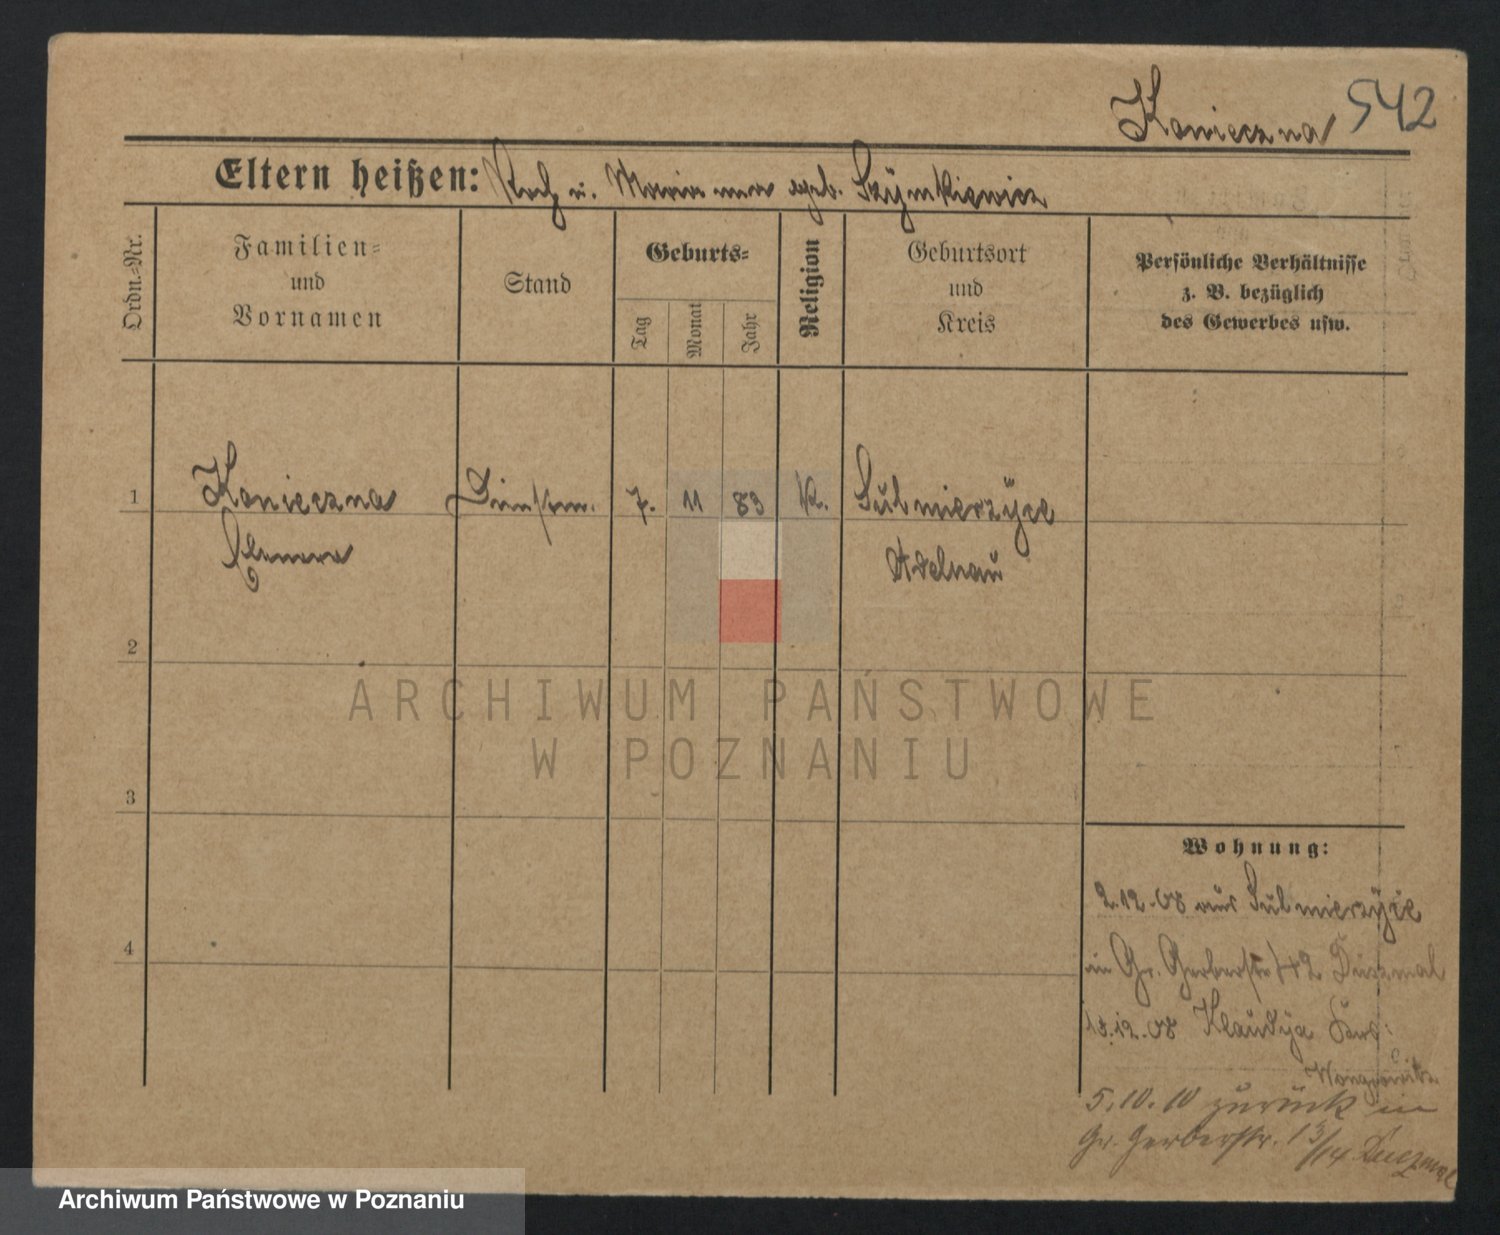 Konieczna 542
Eltern heißen: Roch u. Marianna geb. Szÿmkiewicz
Ordn.-Nr.
Familien-
und
Vornamen
Stand
Geburts-
Tag
Monat
Jahr
Religion
Geburtsort
und
Kreis
Persönliche Verhältnisse
z. B. bezüglich
des Gewerbes usw.
1 Konieczna 7. 11 83 K. Sulmierzÿce
Adelnau
2
3
4
Wohnung:
2.12.08 aus Sulmierzÿce
in Gr. Gerberstr. 42
12.08 Klaudÿa
Wongrowitz
5.10.10 zurück in
Gr. Gerberstr. 13/14
ARCHIWUM PAŃSTWOWE
W POZNANIU
Archiwum Państwowe w Poznaniu